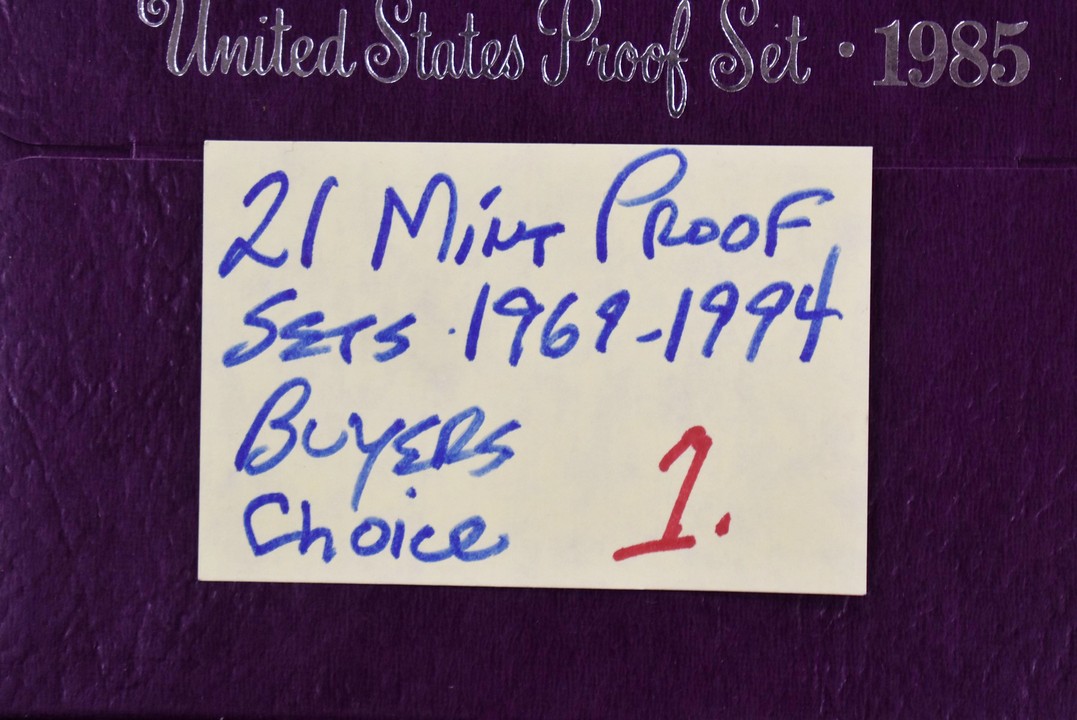 United States Proof Set · 1985
21 Mint Proof
Sets 1969-1994
Buyers
Choice 1.